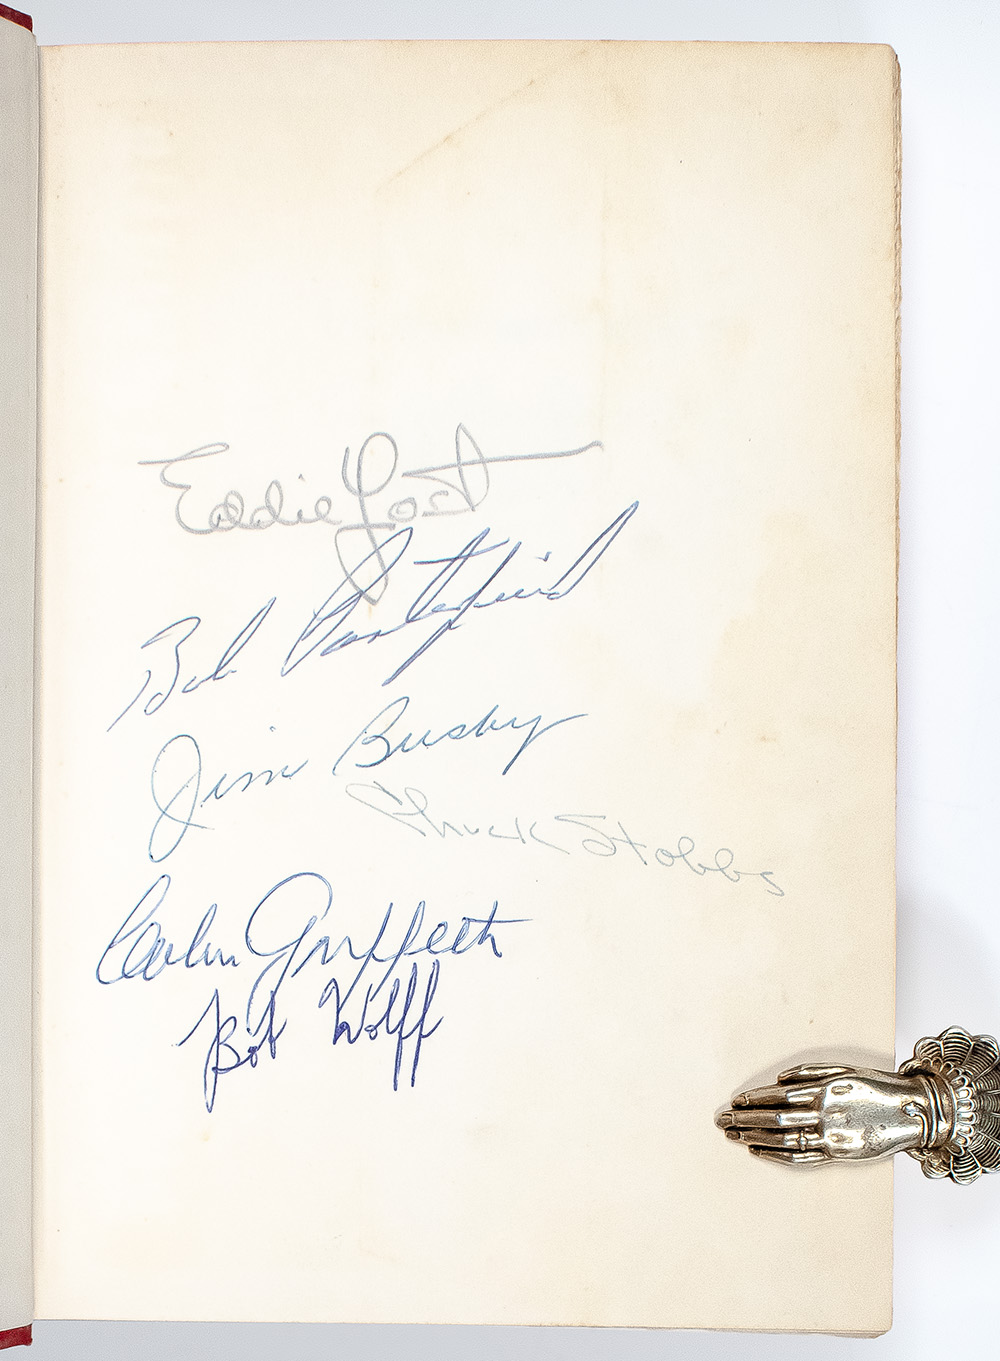 Eddie Yost
Bob Porterfield
Jim Busby
Chuck Stobbs
Calvin Griffith
Bob Wolff